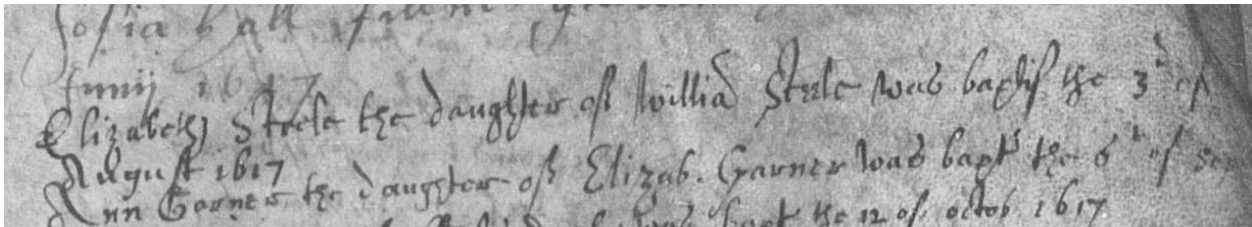 Josia Hall
Junij 1617
Elizabeth Steele the daughter of Willia Steele was baptis the 3d of
August 1617
Ann Garner the daughter of Elizab. Garner was bapt the 6th of Sep
was bapt the 12 of octob 1617